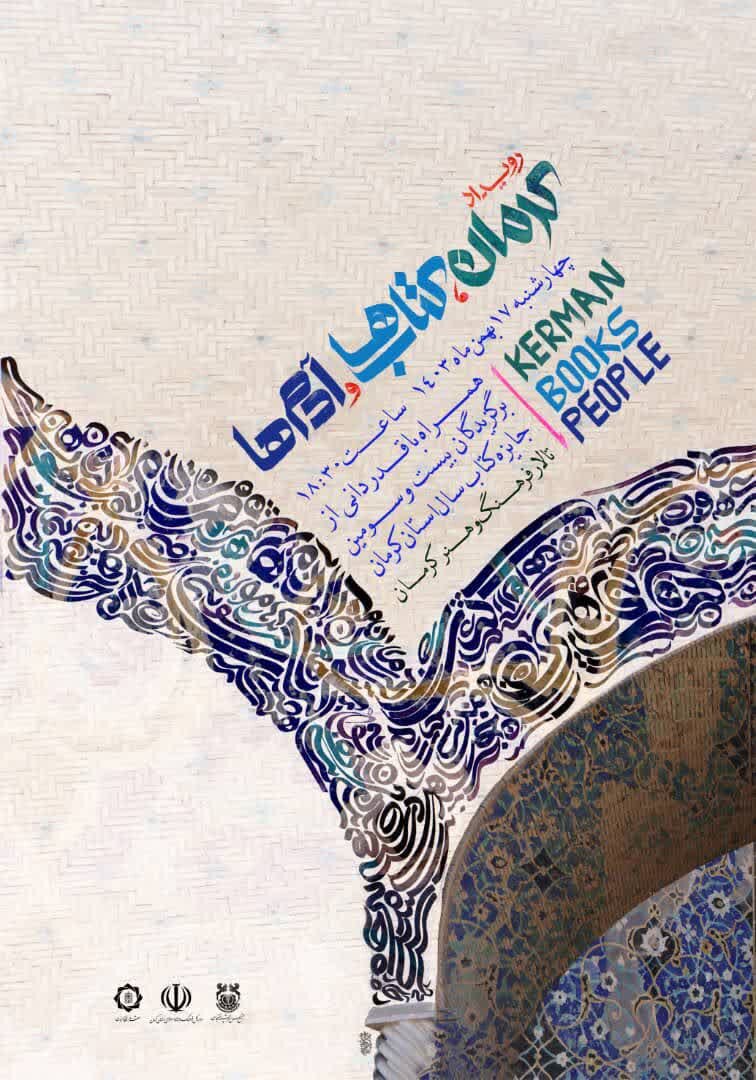 رویداد
کرمان، کتاب‌ها
و آدم‌ها
چهارشنبه ۱۷ بهمن ماه ۱۴۰۳ ساعت ۱۸:۳۰
همراه با قدردانی از
برگزیدگان بیست و سومین
جایزه کتاب سال استان کرمان
تالار فرهنگ و هنر کرمان
KERMAN
BOOKS
PEOPLE